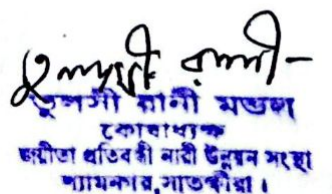 তুলসী রানী
তুলসী রানী মন্ডল
কোষাধ্যক্ষ
জয়ীতা প্রতিবন্ধী নারী উন্নয়ন সংস্থা
শ্যামনগর, সাতক্ষীরা।